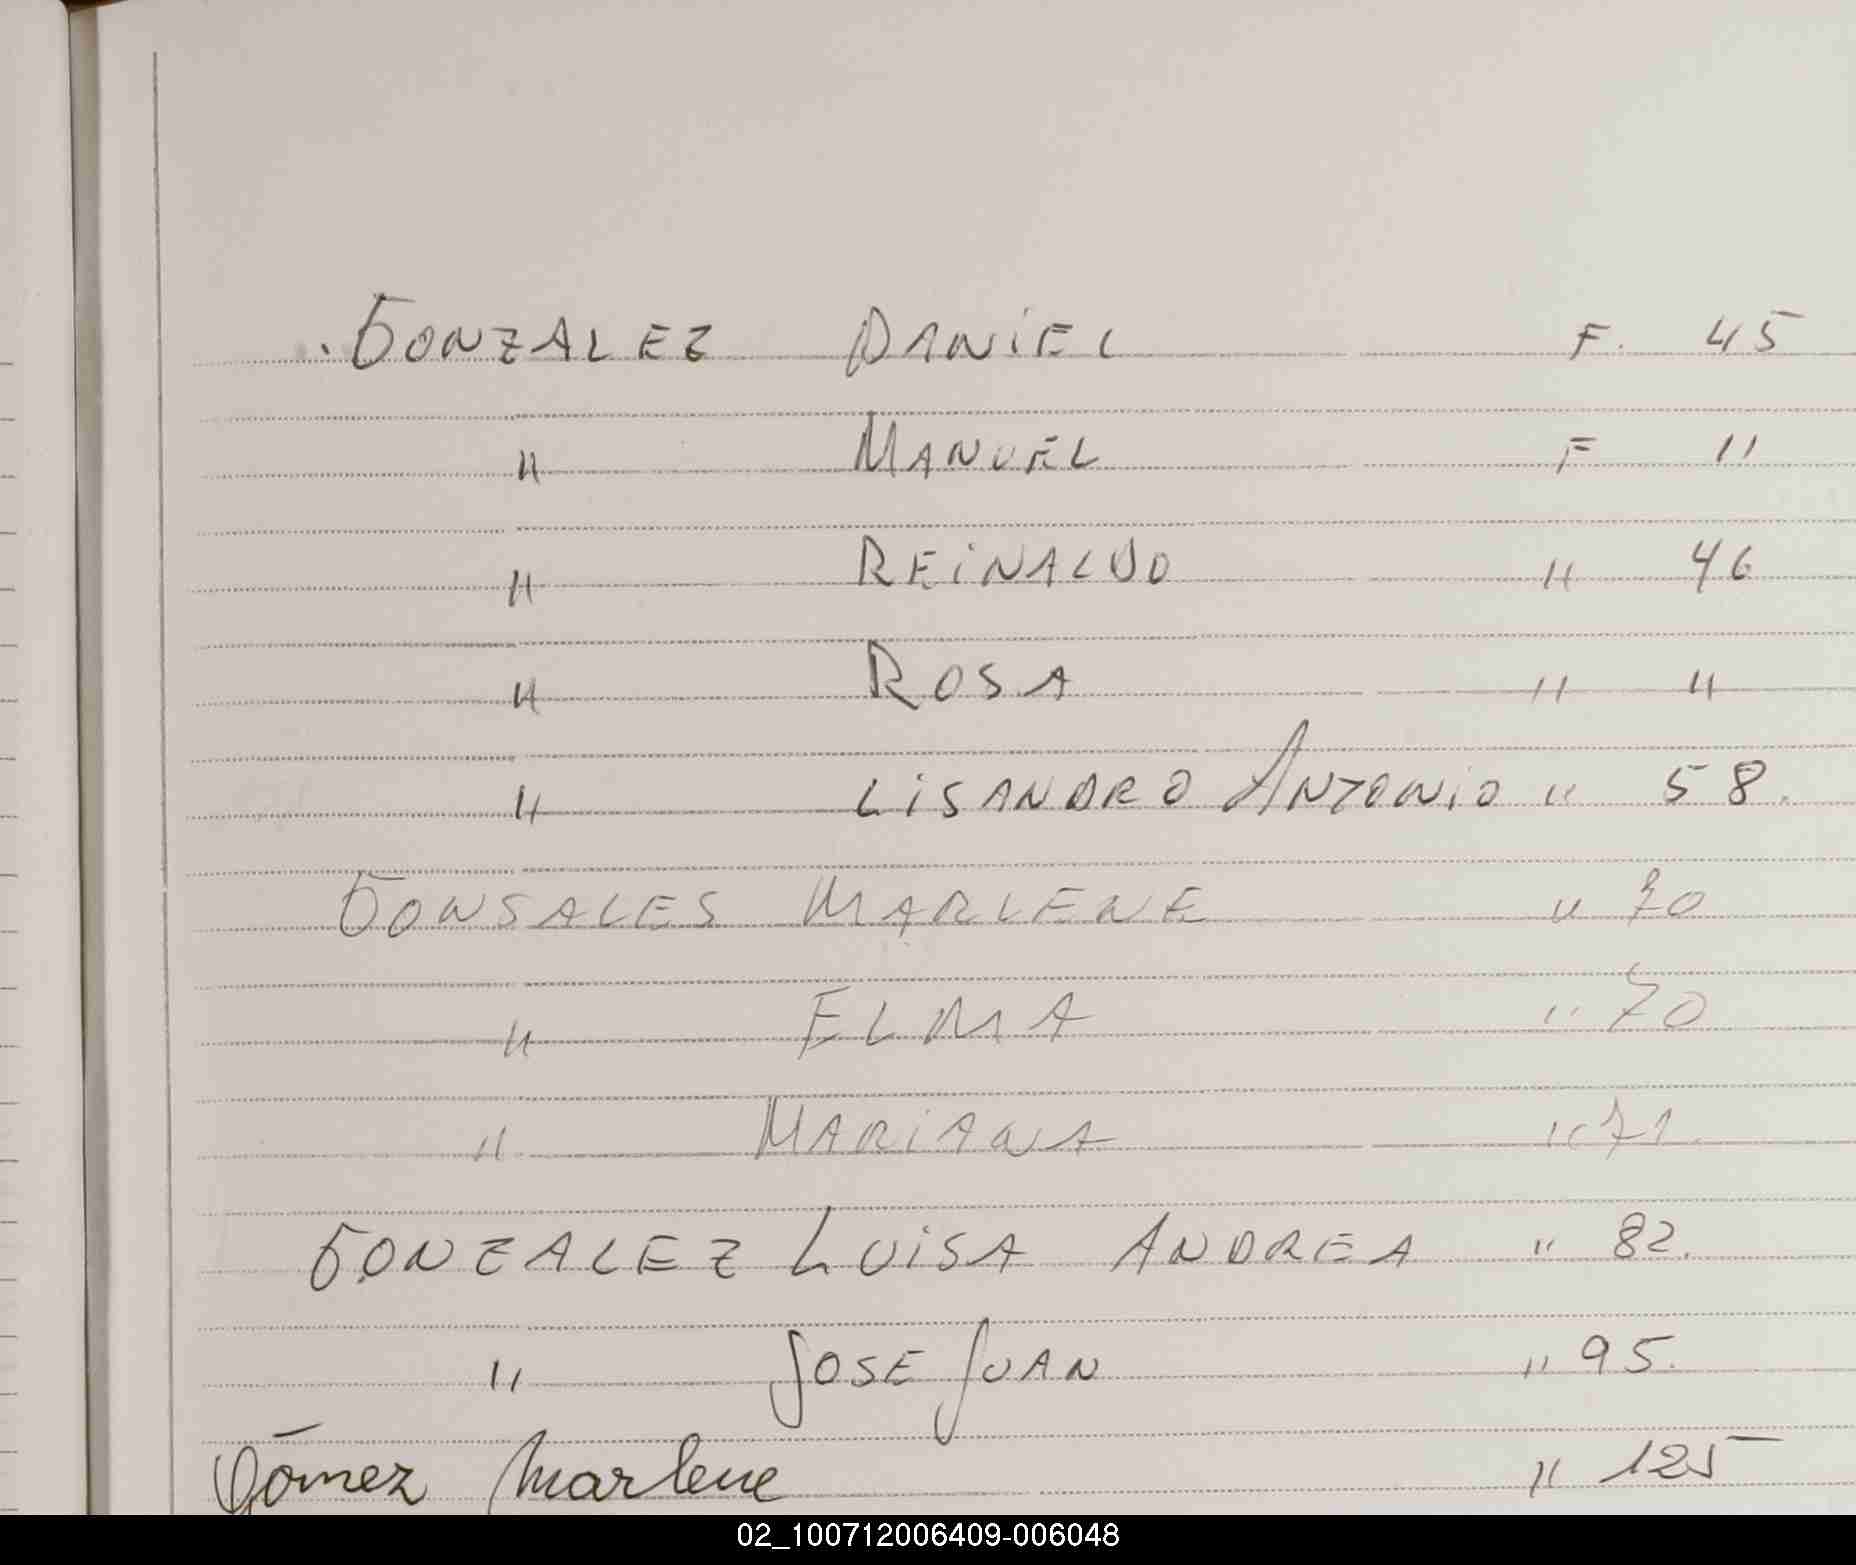 . GONZALEZ DANiEL F. 45
" MANUEL F "
" REiNALDO " 46
" ROSA " "
" LiSANDRO ANTONiO " 58.
GONSALES MARLENE " 70
" ELMA " 70
" MARiANA " 71.
GONZALEZ LUiSA ANDREA " 82.
" JOSE JUAN " 95.
Gómez Marlene " 125
02_100712006409-006048